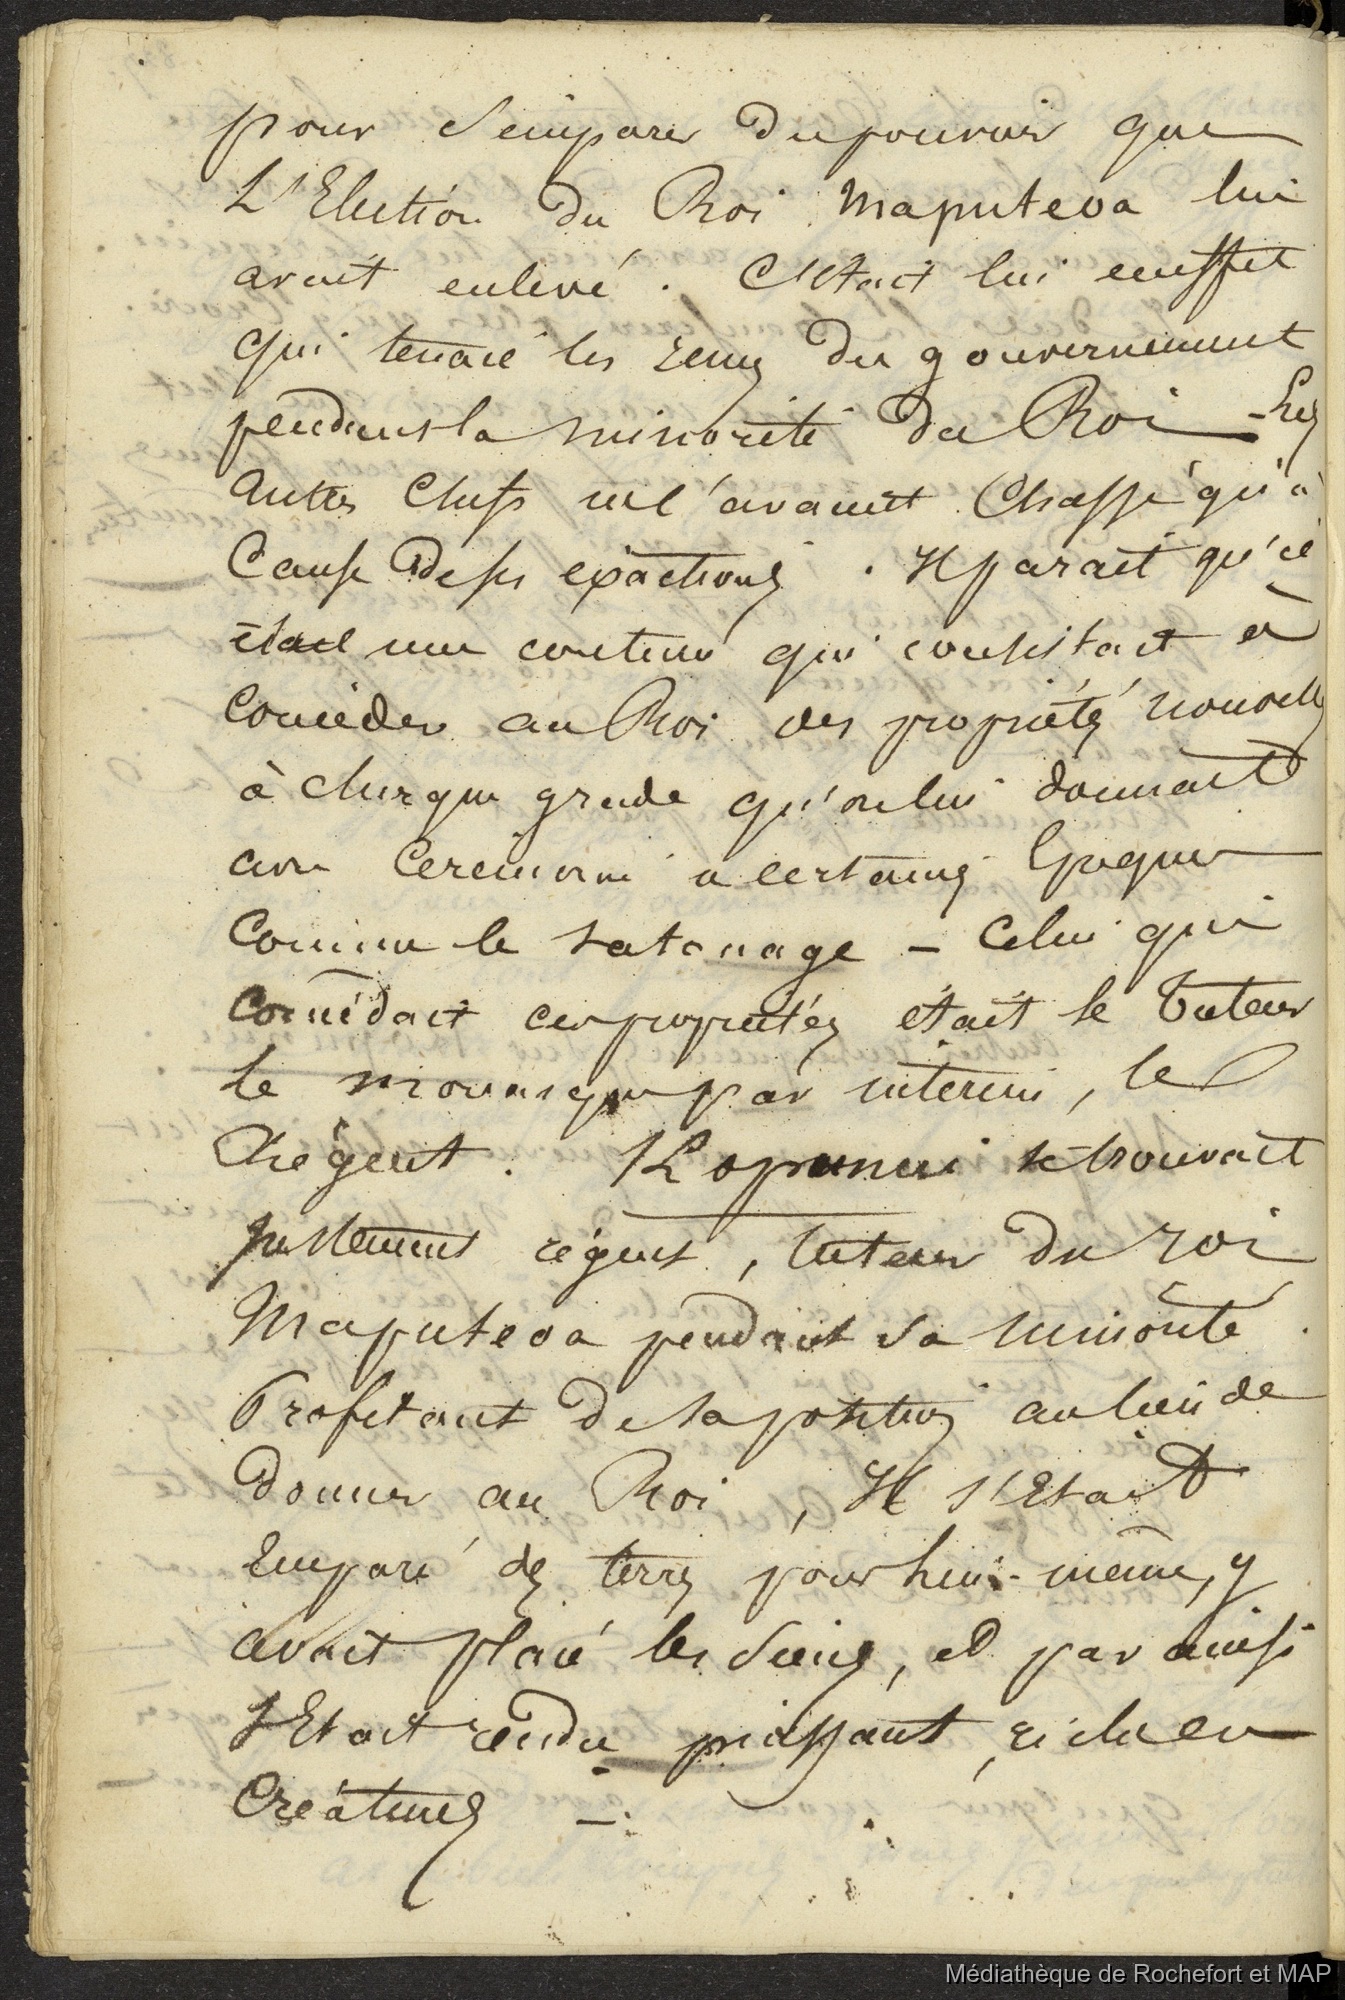 pour s'emparer du pouvoir que
L'Election du Roi Maputeoa lui
avait enlevé. C'etait lui eneffet
qui tenait les renes du gouvernement
pendant la minorité du Roi - Les
autres chefs ne l'avaient chassé qu'à
Cause de ses exactions. Il parait qu'il
était une coutume qui consistait à
Concéder au Roi des propriétés nouvelles
à chaque grade qu'on lui donnait
avec Ceremonie a certaines Epoques
Comme le tatouage - Celui qui
Concédait ces propriétés était le Tuteur
le monarque par interim, le
Régent. Kopunui se trouvait
justement régent, tuteur du roi
Maputeoa pendant sa minorité.
Profitant de sa position au lieu de
donner au Roi, Il s'Etait
Emparé des terres pour lui-même, y
avait placé les siens, et par ainsi
s'Etait rendu puissant, riche en
Créatures -.
Médiathèque de Rochefort et MAP